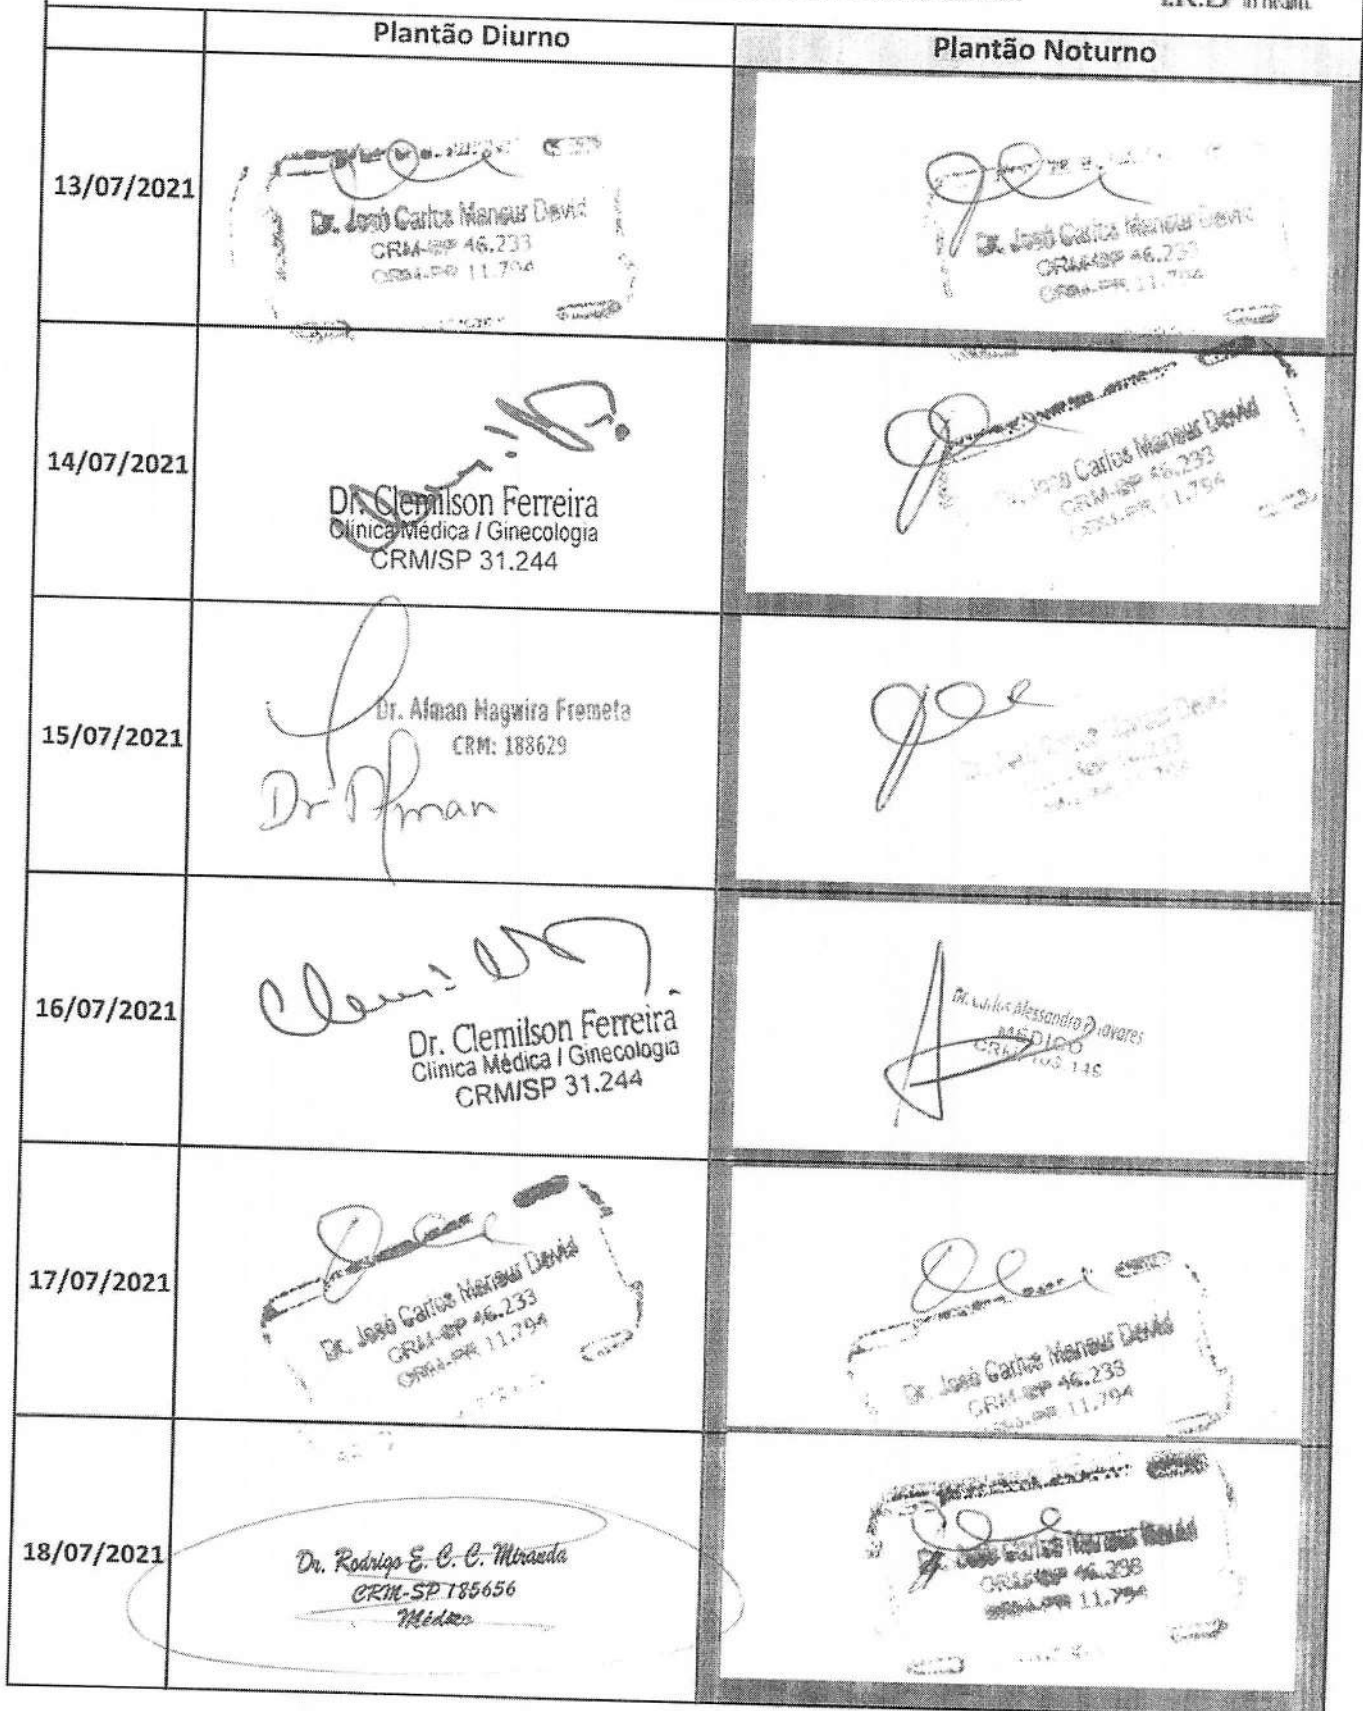 Plantão Diurno
Plantão Noturno
13/07/2021
Dr. José Carlos Mansur David
CRM-SP 46.233
CRM-PR 11.794
Dr. José Carlos Mansur David
CRM-SP 46.233
CRM-PR 11.794
14/07/2021
Dr. Clemilson Ferreira
Clínica Médica / Ginecologia
CRM/SP 31.244
Dr. José Carlos Mansur David
CRM-SP 46.233
CRM-PR 11.794
15/07/2021
Dr. Afman Nagwira Fremeta
CRM: 188629
Dr Afman
16/07/2021
Dr. Clemilson Ferreira
Clínica Médica / Ginecologia
CRM/SP 31.244
Dr. Carlos Alessandro
MÉDICO
17/07/2021
Dr. José Carlos Mansur David
CRM-SP 46.233
CRM-PR 11.794
Dr. José Carlos Mansur David
CRM-SP 46.233
CRM-PR 11.794
18/07/2021
Dr. Rodrigo E. C. C. Miranda
CRM-SP 185656
Médico
Dr. José Carlos Mansur David
CRM-PR 11.794